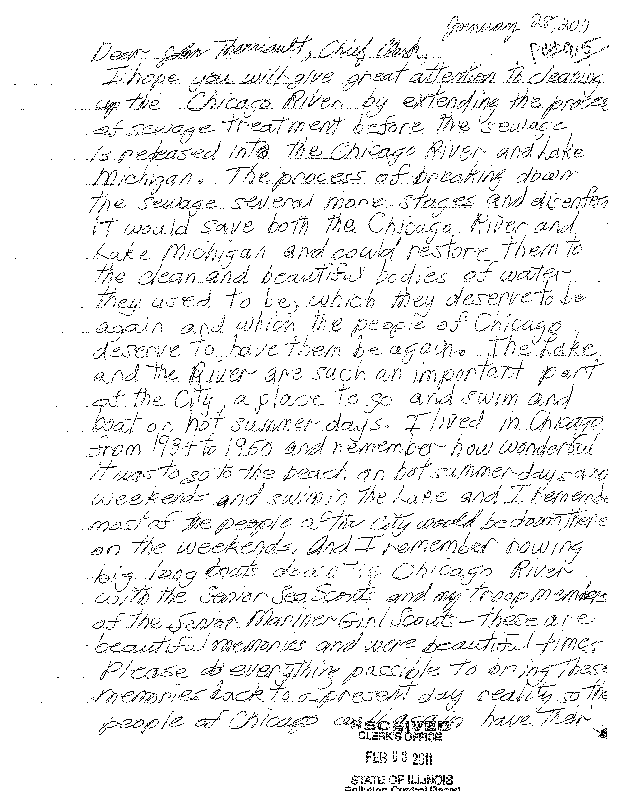 January 28, 2011
Dear John Therriault, Chief Clerk,
I hope you will give great attention to cleaning
up the Chicago River by extending the process
of sewage treatment before the sewage
is released into the Chicago River and Lake
Michigan. The process of breaking down
the sewage several more stages and
it would save both the Chicago River and
Lake Michigan and could restore them to
the clean and beautiful bodies of water
they used to be, which they deserve to be
again and which the people of Chicago
deserve to have them be again. The Lake
and the River are such an important part
of the City, a place to go and swim and
boat on hot summer days. I lived in Chicago
from 1934 to 1960 and remember how wonderful
it was to go to the beach on hot summer days and
weekends and swim in the Lake and I remember
most of the people of the City would be down there
on the weekends. And I remember rowing
big long boats down the Chicago River
with the Senior Sea Scouts and my troop members
of the Senior Mariner Girl Scouts - these are
beautiful memories and were beautiful times.
Please do everything possible to bring these
memories back to a present day reality so the
people of Chicago can have their
RECEIVED
CLERK'S OFFICE
FEB 03 2011
STATE OF ILLINOIS
Pollution Control Board